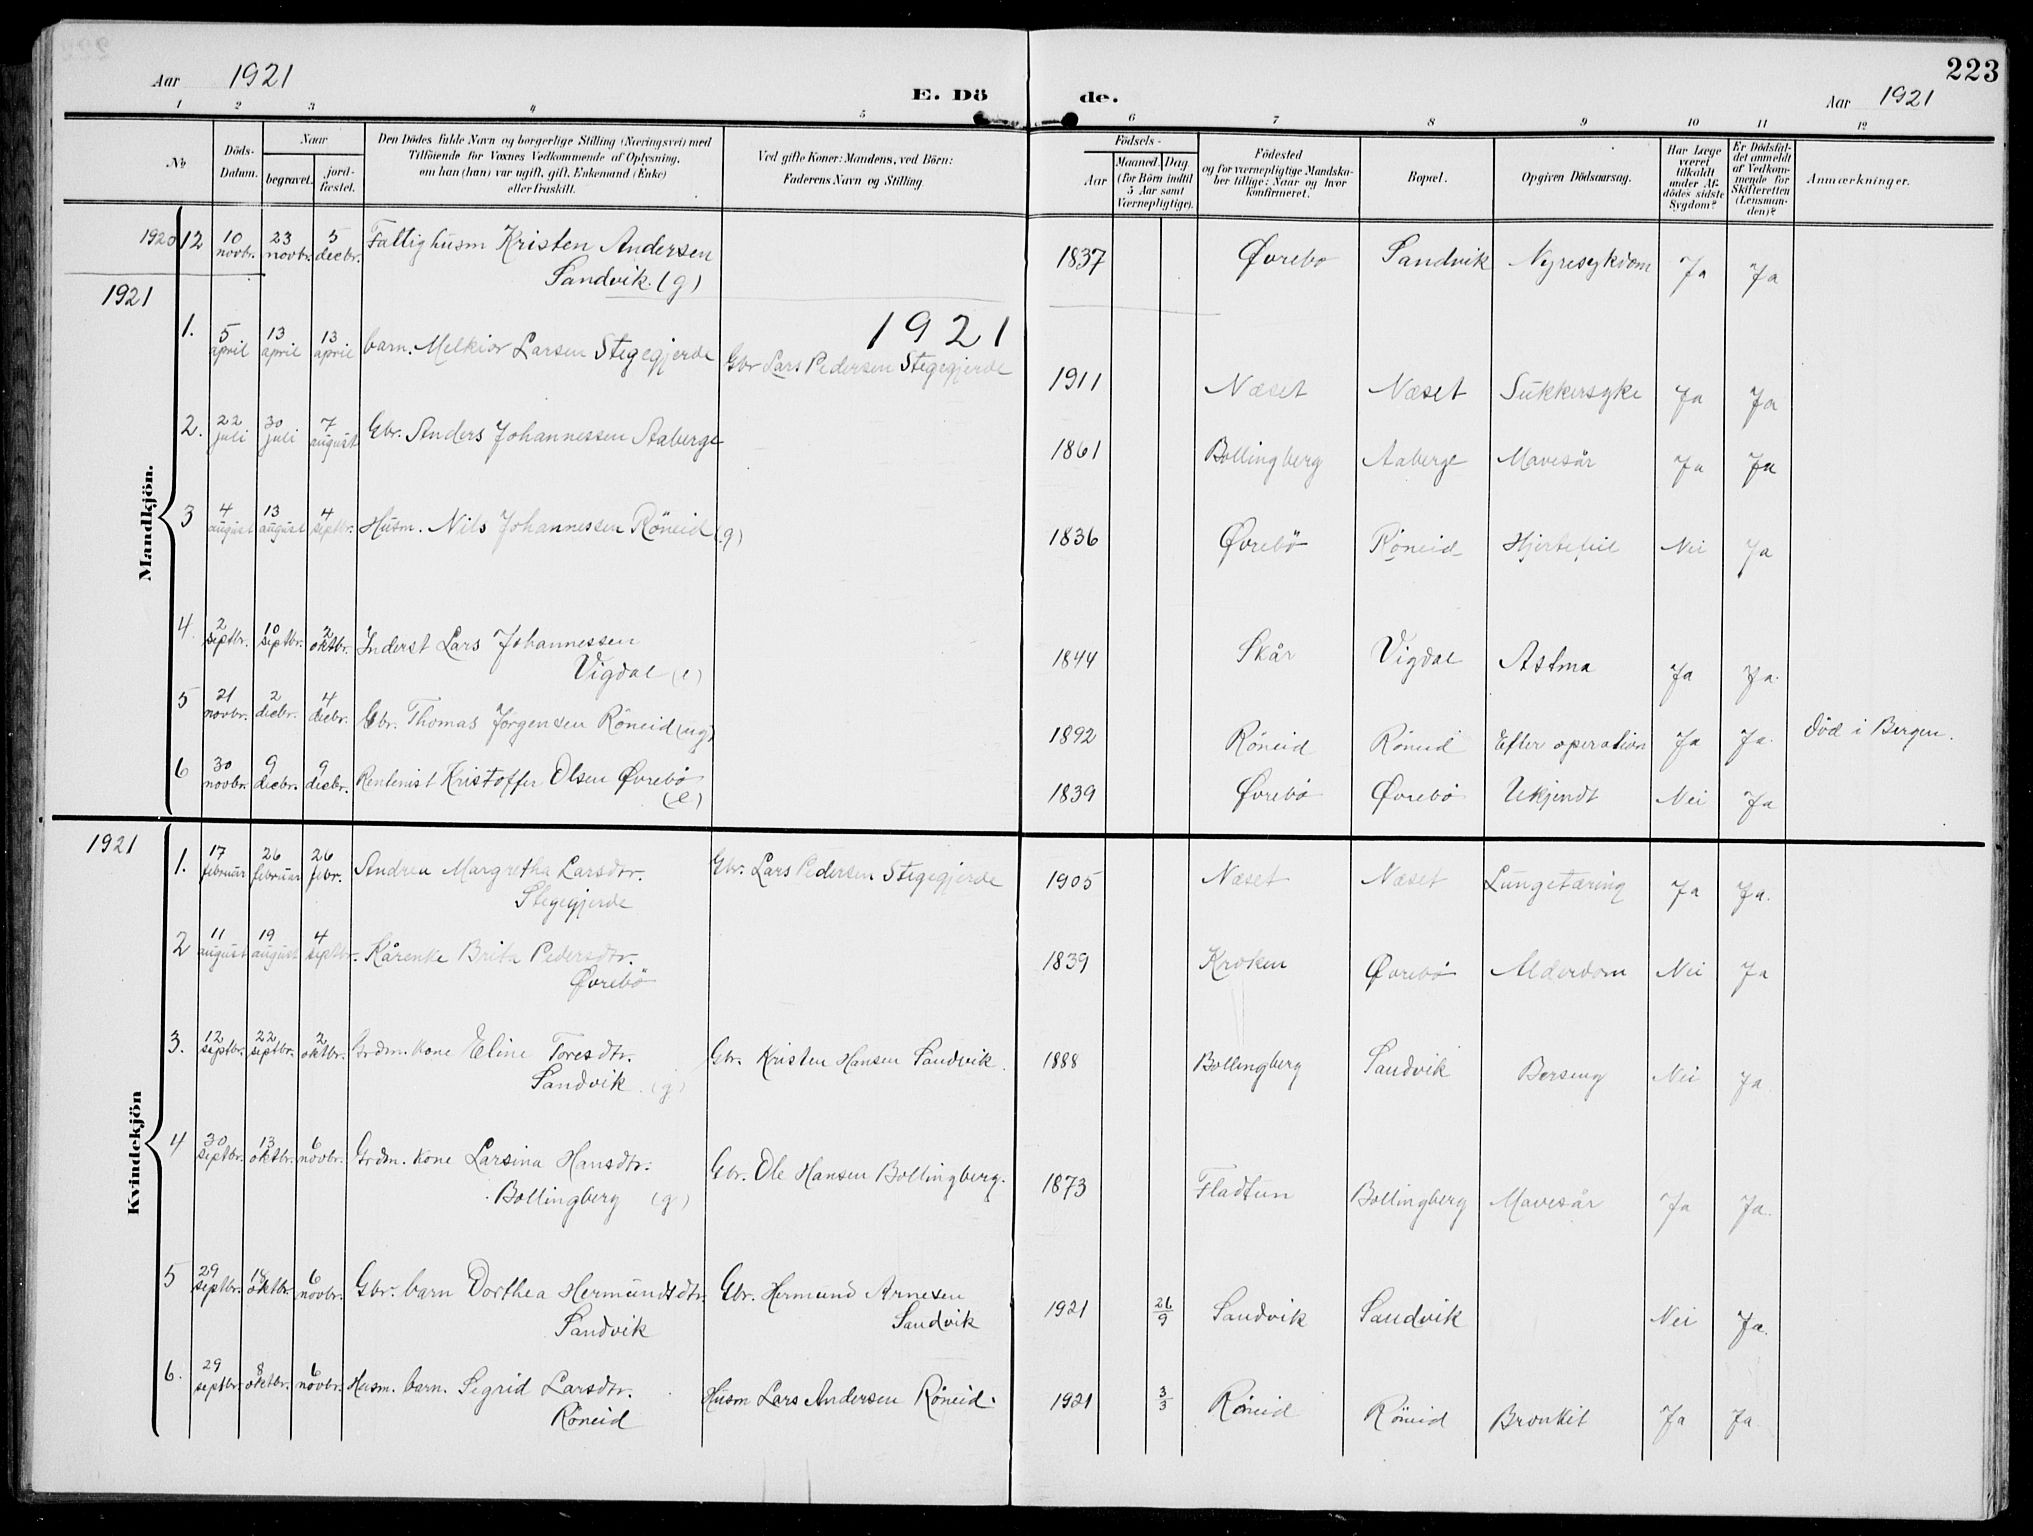 223
Aar 1921
E. Dö de.
Aar 1921
1 2 3 4 5 6 7 8 9 10 11 12
No
Döds-Datum.
Naar
begravet.
jord-fæstet.
Den Dödes fulde Navn og borgerlige Stilling (Næringsvei) med
Tilföiende for Voxnes Vedkommende af Oplysning,
om han (hun) var ugift, gift, Enkemand (Enke)
eller fraskilt.
Ved gifte Koner: Mandens, ved Börn:
Faderens Navn og Stilling.
Födsels-
Aar
Maaned. Dag.
(for Börn indtil
5 Aar samt
Værnepligtige).
Födested
og for værnepligtige Mandska-
ber tillige: Naar og hvor
konfirmeret.
Bopæl.
Opgiven Dödsaarsag.
Har Læge
været
tilkaldt
under Af-
dödes sidste
Sygdom?
Er Dödsfal-
det anmeldt
af Vedkom-
mende for
Skifteretten
(Lensman-
den)?
Anmærkninger.
Mandkjön.
1920 12 10 novbr. 23 novbr. 5 decbr. Fattighusm Kristen Andersen 1837 Øvrebo Sandvik Nyresykdom Ja Ja
Sandvik. (g)
1921
1921
1. 5 april 13 april 13 april barn. Melkior Larsen Stegegjerde Gbr Lars Pedersen Stegegjerde 1911 Næset Næset Sukkersyke Ja Ja
2. 22 juli 30 juli 7 august Gbr. Anders Johannessen Aaberge 1861 Bollingberg Aaberge Mavesår Ja Ja
3 4 august 13 august 4 septbr. Husm. Nils Johannessen Röneid (g) 1836 Øvrebö Röneid Hjertefeil Nei Ja
4. 2 septbr. 10 septbr. 2 oktbr. Inderst Lars Johannessen 1844 Skår Vigdal Astma Ja Ja.
Vigdal (e)
5 21 novbr. 2 decbr. 4 decbr. Gbr. Thomas Jörgensen Röneid (ug) 1892 Röneid Röneid Efter operation Ja Ja. Död i Bergen.
6 30 novbr. 9 decbr. 9 decbr. Rentenist Kristoffer Olsen Øvrebö 1839 Øvrebö Øvrebö Ukjendt Nei Ja
(e)
Kvindekjön
1921
1. 17 februar 26 februar 26 febr. Andrea Margretha Larsdtr. Gbr. Lars Pedersen Stegegjerde 1905 Næset Næset Lungetæring Ja Ja.
Stegegjerde
2 11 august 19 august 4 septbr. Kårenke Brita Pedersdtr. 1839 Kroken Øvrebö Alderdom Nei Ja
Øvrebö
3. 12 septbr. 22 septbr. 2 oktbr. Grdm. kone Eline Toresdtr. Gbr. Kristen Hansen Sandvik. 1888 Bollingberg Sandvik Barseng Nei Ja
Sandvik. (g)
4 30 septbr. 13 oktbr. 6 novbr. Grdm. kone Larsina Hansdtr. Gbr. Ole Hansen Bollingberg. 1873 Fladtun Bollingberg Mavesår Ja Ja.
Bollingberg (g)
5 29 septbr. 18 oktbr. 6 novbr. Gbr. barn Dorthea Hermundsdtr. Gbr. Hermund Arnesen 1921 26/9 Sandvik Sandvik Nei Ja.
Sandvik Sandvik
6. 29 septbr. 8 oktbr. 6 novbr. Husm. barn. Sigrid Larsdtr. Husm Lars Andersen Röneid. 1921 3/3 Röneid Röneid Bronkit Ja Ja
Röneid